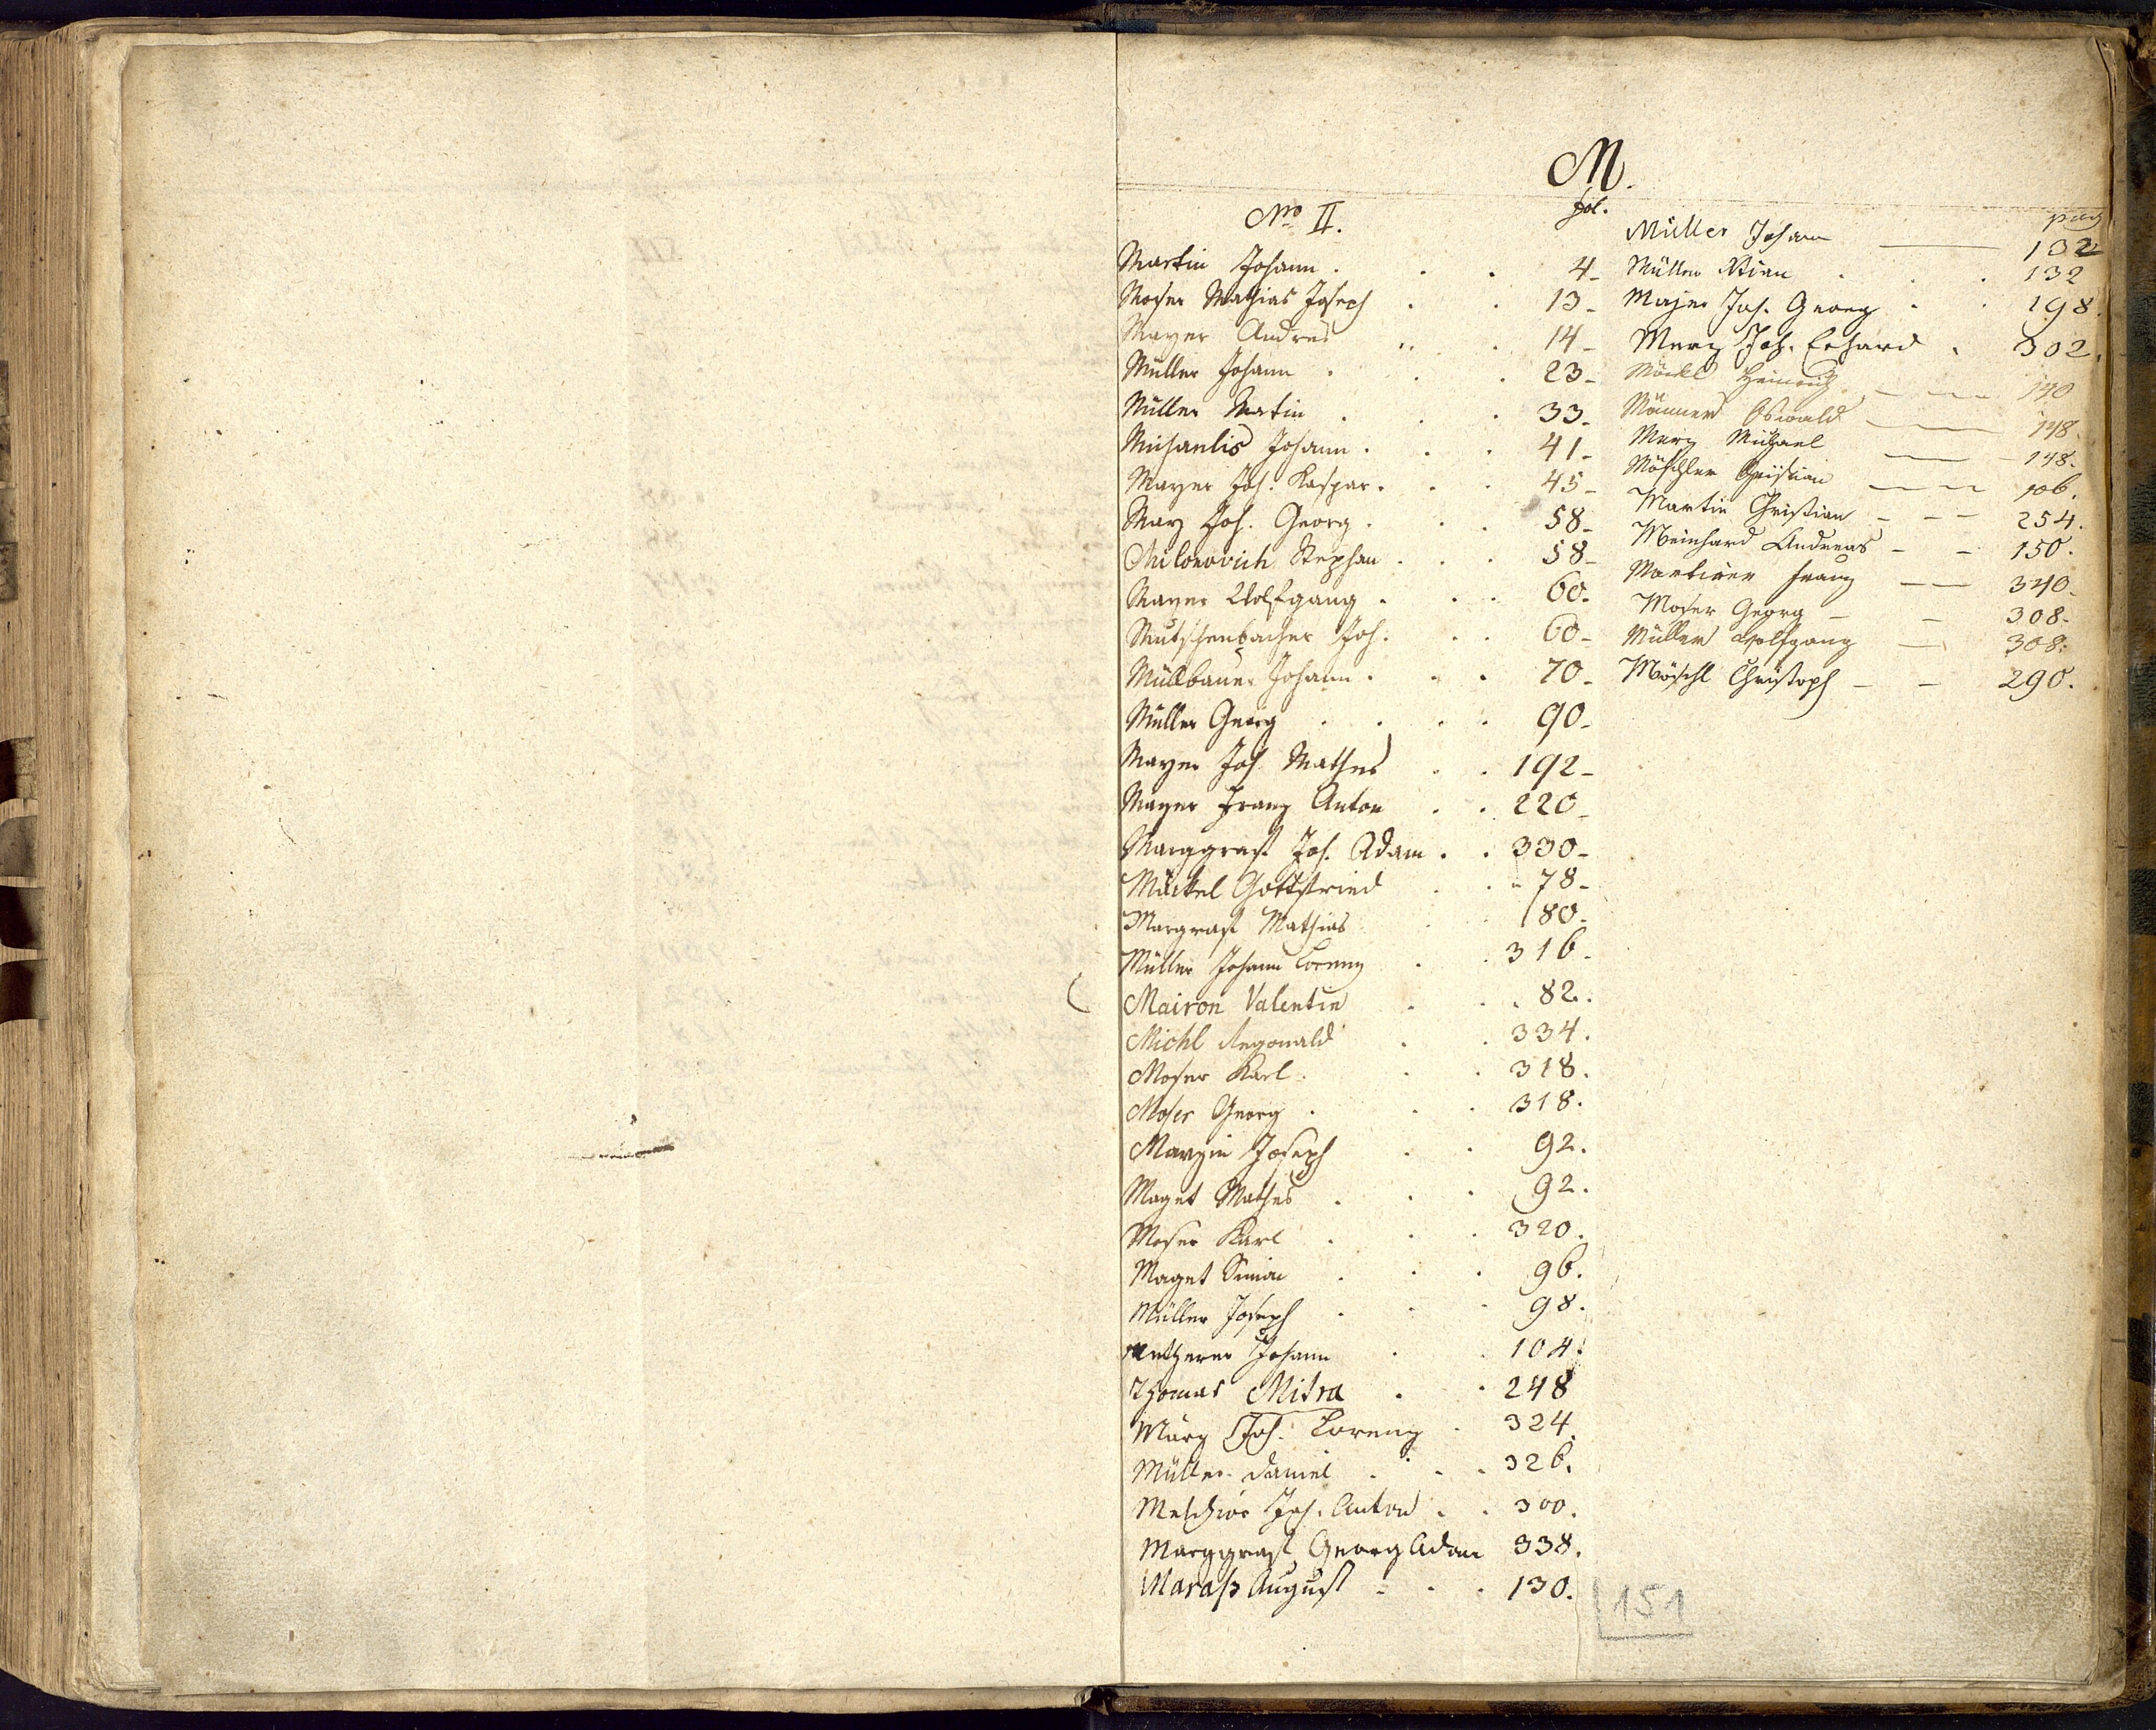 M.
Nro II. fol.
Martin Johann . . . 4-
Moser Mathias Joseph . . 13-
Mayer Andres . . 14-
Müller Johann . . . 23-
Müller Martin . . . 33-
Michaelis Johann . . . 41-
Mayer Joh. Kaspar . . . 45-
May Joh. Georg . . . 58-
Milonovich Stephan . . . 58-
Mayer Wolfgang . . . 60-
Mutschenbacher Joh. . . 60-
Müllbauer Johann . . . 70-
Müller Georg . . . . 90-
Mayer Joh. Mathes . . 192-
Mayer Franz Anton . . 220-
Marggraff Joh. Adam . . 330-
Märkel Gottfried . . 78-
Margraff Mathias . . 80-
Müller Johann Lorenz . . 316-
Mairon Valentin . . . 82.
Michl . . 334.
Moser Karl . . 318.
Moser Georg . . . 318.
Marzin Joseph . . 92.
Maget Mathes . . . 92.
Moser Karl . . . 320.
Maget Simon . . . 96.
Müller Joseph . . . 98.
Johann . . 104.
Thomas Mitra . . 248
März Joh. Lorenz . 324.
Müller Daniel . . . 326.
Melchior Joh. Anton . . 300.
Marggraff Georg Adam 338.
Maraß August . . . 130.
pag
Müller Johann — 132
Müller . . 132
Majer Joh. Georg . . 198.
Merz Joh. Erhard . 302.
Möckl Heinrich — — 140
Männer Oswald — — 148.
Merz Michael — — 148.
Möschler Christian — — 106.
Martin Christian - - - 254.
Meinhard Andreas - - 150.
Martiner Franz — — 340.
Moser Georg - - 308.
Müller Wolfgang — 308.
Möschl Christoph - - 290.
151